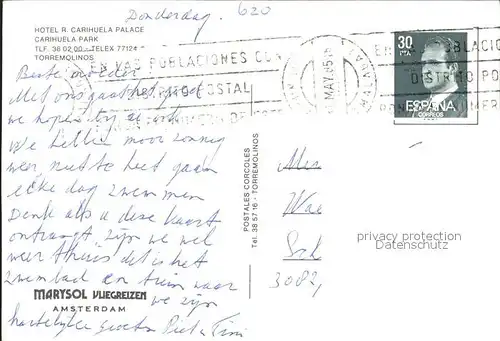 Donderdag. 620
HOTEL R. CARIHUELA PALACE
CARIHUELA PARK
TLF. 38 02 00 - TELEX 77124
TORREMOLINOS
EN LAS POBLACIONES CON
DISTRITO POSTAL
MAY.85
MALAGA
30
PTA
ESPAÑA
CORREOS
POBLACIO
DISTRITO PO
Beste
Met ons gaat het goed
we hopen bij
We hebben mooi zonnig
weer niet te heet gaan
elke dag zwemmen
Denk als u deze kaart
ontvangt zijn we wel
weer thuis dit is het
zwembad en tuin waar
we zijn
MARYSOL VLIEGREIZEN
AMSTERDAM
hartelijke groeten Piet
POSTALES CORCOLES
Tel. 38 57 16 - TORREMOLINOS
3082,
privacy protection
Datenschutz